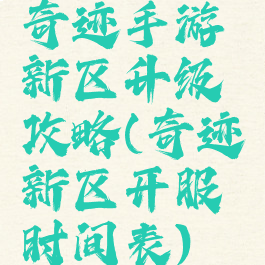 奇迹手游
新区升级
攻略(奇迹
新区开服
时间表)